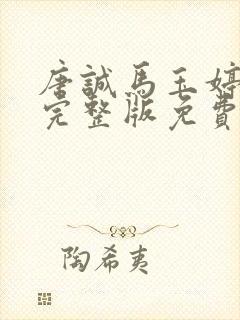 唐誠馬玉婷
完整版免費
陶希夷